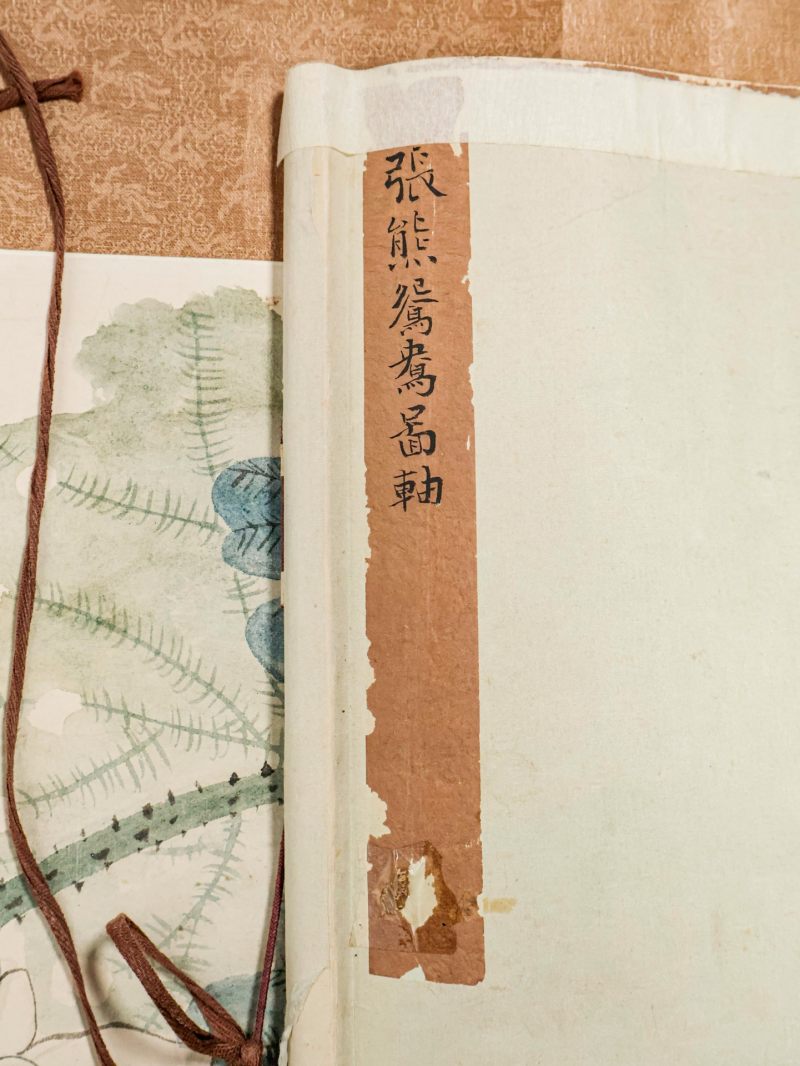 張熊鴛鴦啚軸